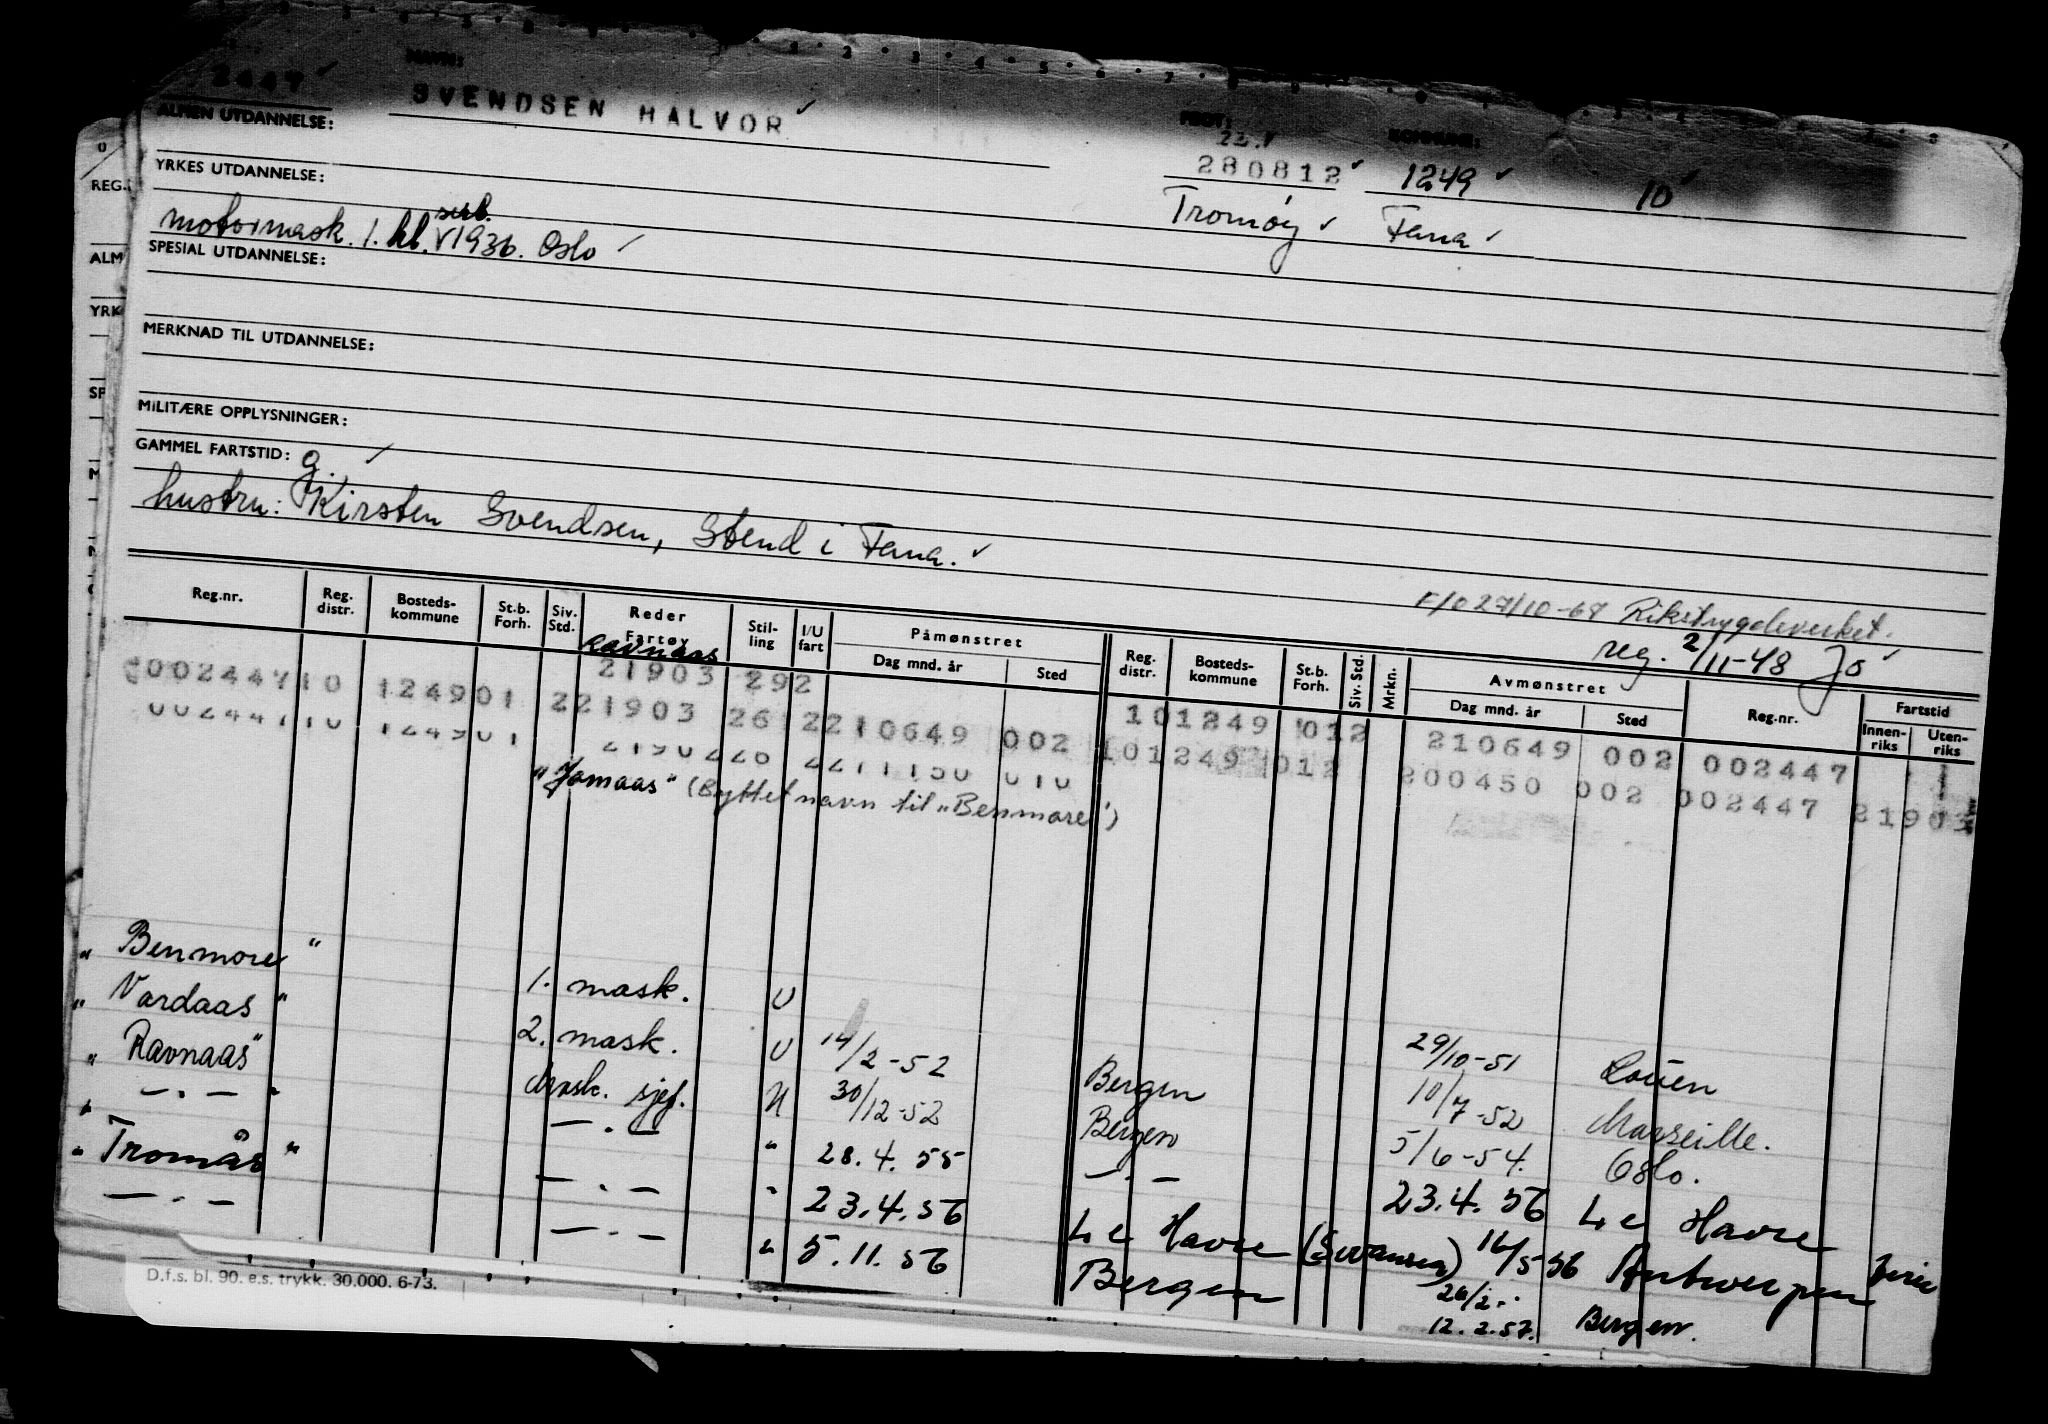 2447 ✓ NAVN:
SVENDSEN HALVOR ✓
FØDT: KOMMUNE:
ALMEN UTDANNELSE:
22. ✓
280812 ✓ 1249 ✓ 10 ✓
YRKES UTDANNELSE:
Tromøy ✓ Fana ✓
motormask. 1. kl. sert. V 1936. Oslo ✓
SPESIAL UTDANNELSE:
MERKNAD TIL UTDANNELSE:
MILITÆRE OPPLYSNINGER:
GAMMEL FARTSTID:
g. ✓
hustru: Kirsten Svendsen, Stend i Fana. ✓
F/O 27/10-67 Rikstrygdeverket.
reg. 2/11-48 Jo ✓
Reg.nr. Reg. distr. Bosteds-kommune St.b. Forh. Siv. Std. Reder Fartøy Stil-ling I/U fart Påmønstret Dag mnd. år Sted Reg. distr. Bosteds-kommune St.b. Forh. Siv. Std. Mrkn. Avmønstret Dag mnd. år Sted Reg.nr. Fartstid Innen-riks Uten-riks
Ravnaas
21903 292
002447 10 124901 221903 26 2210649 002 101249 012 210649 002 002447
002447 10 124901 2190226 2211150 010 101249 012 200450 002 002447 21903
"Jomaas" (Byttet navn til "Benmore")
"Benmore" 1. mask. U 29/10-51 Rouen
"Vardaas" 2. mask. U 14/2-52 Bergen 10/7-52 Marseille.
"Ravnaas" Mask. sjef. U 30/12-52 Bergen 5/6-54. Oslo.
" — . — " — . — " 28. 4. 55 — . — 23. 4. 56 Le Havre
"Tromås" — . — " 23. 4. 56 Le Havre (Swansea) 16/5-56 Antwerpen
— . — — . — " 5. 11. 56 Bergen 26/2-
12. 2. 57. Bergen.
D.f.s. bl. 90. e.s. trykk. 30.000. 6-73.
O
REG.
ALM
YRK
SP
M